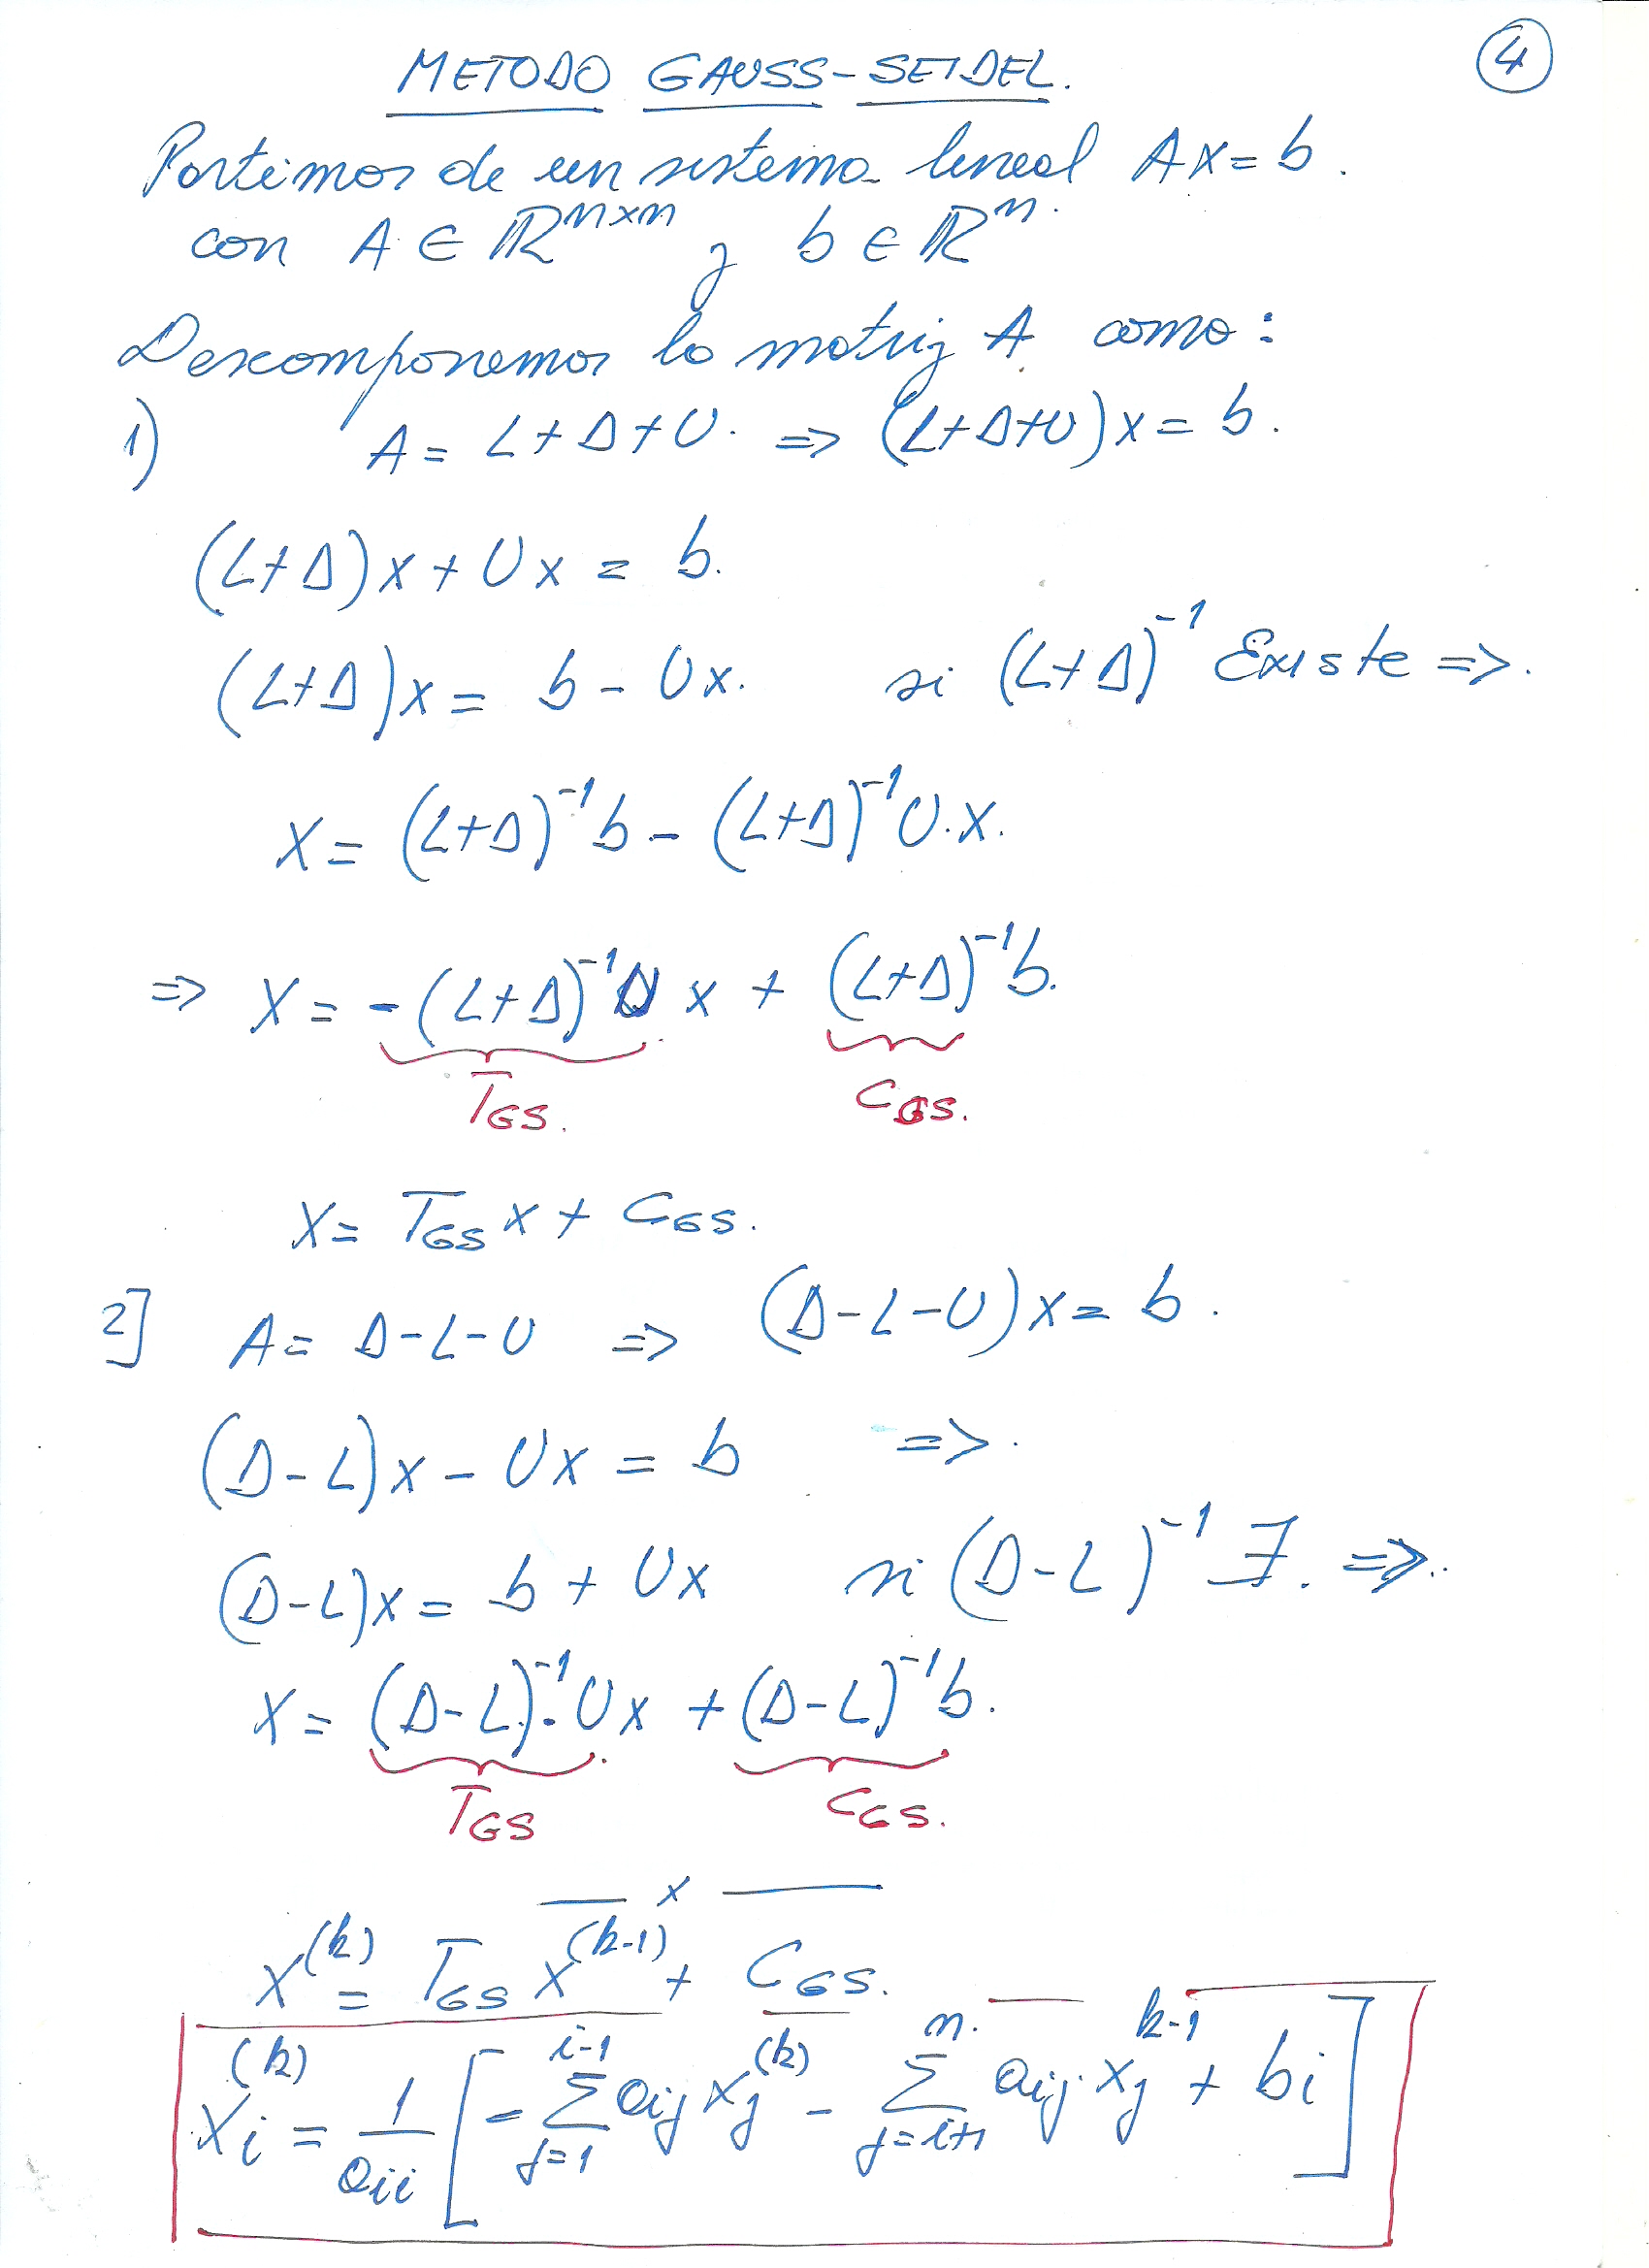 METODO GAUSS-SEIDEL.
4
Partimos de un sistema lineal Ax=b.
con A ∈ ℝⁿˣⁿ y b ∈ ℝⁿ.
Descomponemos la matriz A como:
1) A = L+D+U. => (L+D+U)x = b.
(L+D)x + Ux = b.
(L+D)x = b - Ux. si (L+D)⁻¹ Existe =>.
X = (L+D)⁻¹b - (L+D)⁻¹U.x.
=> X = -(L+D)⁻¹U x + (L+D)⁻¹b.
T_GS. C_GS.
X = T_GS x + C_GS.
2] A = D-L-U => (D-L-U)x = b.
(D-L)x - Ux = b =>.
(D-L)x = b + Ux si (D-L)⁻¹ ∃. =>.
X = (D-L)⁻¹.Ux + (D-L)⁻¹b.
T_GS C_GS.
x
X^(k) = T_GS X^(k-1) + C_GS.
X_i^(k) = 1/a_ii [ - Σ_{j=1}^{i-1} a_ij x_j^(k) - Σ_{j=i+1}^{n} a_ij x_j^{k-1} + b_i ]